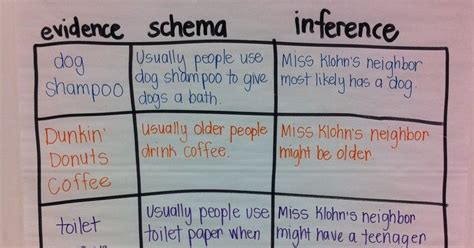 evidence schema inference
dog shampoo
Usually people use
dog shampoo to give
dogs a bath.
Miss Klohn's neighbor
most likely has a dog.
Dunkin'
Donuts
Coffee
usually older people
drink coffee.
Miss Klohn's neighbor
might be older.
toilet
usually people use
toilet paper when
Miss Klohn's neighbor
might have a teenager